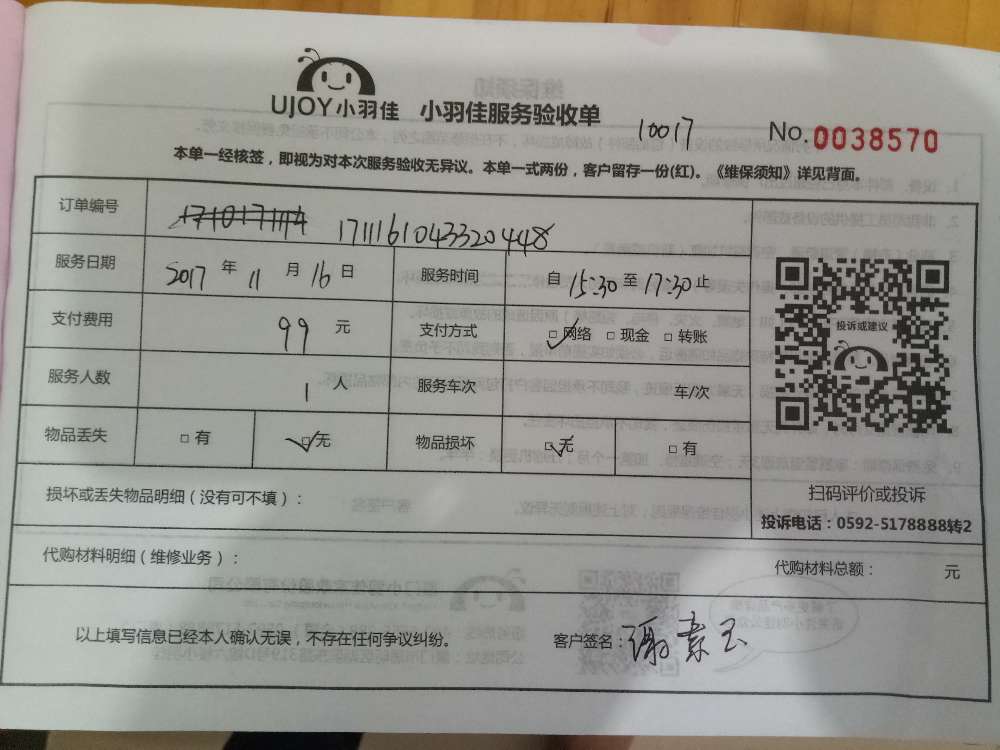 UJOY小羽佳 小羽佳服务验收单
10017 No.0038570
本单一经核签，即视为对本次服务验收无异议。本单一式两份，客户留存一份(红)。《维保须知》详见背面。
订单编号 1711161043320448
服务日期 2017 年 11 月 16 日 服务时间 自 15:30 至 17:30 止
支付费用 99 元 支付方式 ☑网络 □ 现金 □ 转账
服务人数 1 人 服务车次 车/次
物品丢失 □ 有 ☑无 物品损坏 ☑无 □ 有
投诉或建议
扫码评价或投诉
投诉电话：0592-5178888转2
损坏或丢失物品明细（没有可不填）：
代购材料明细（维修业务）：
代购材料总额： 元
以上填写信息已经本人确认无误，不存在任何争议纠纷。 客户签名：谢素玉